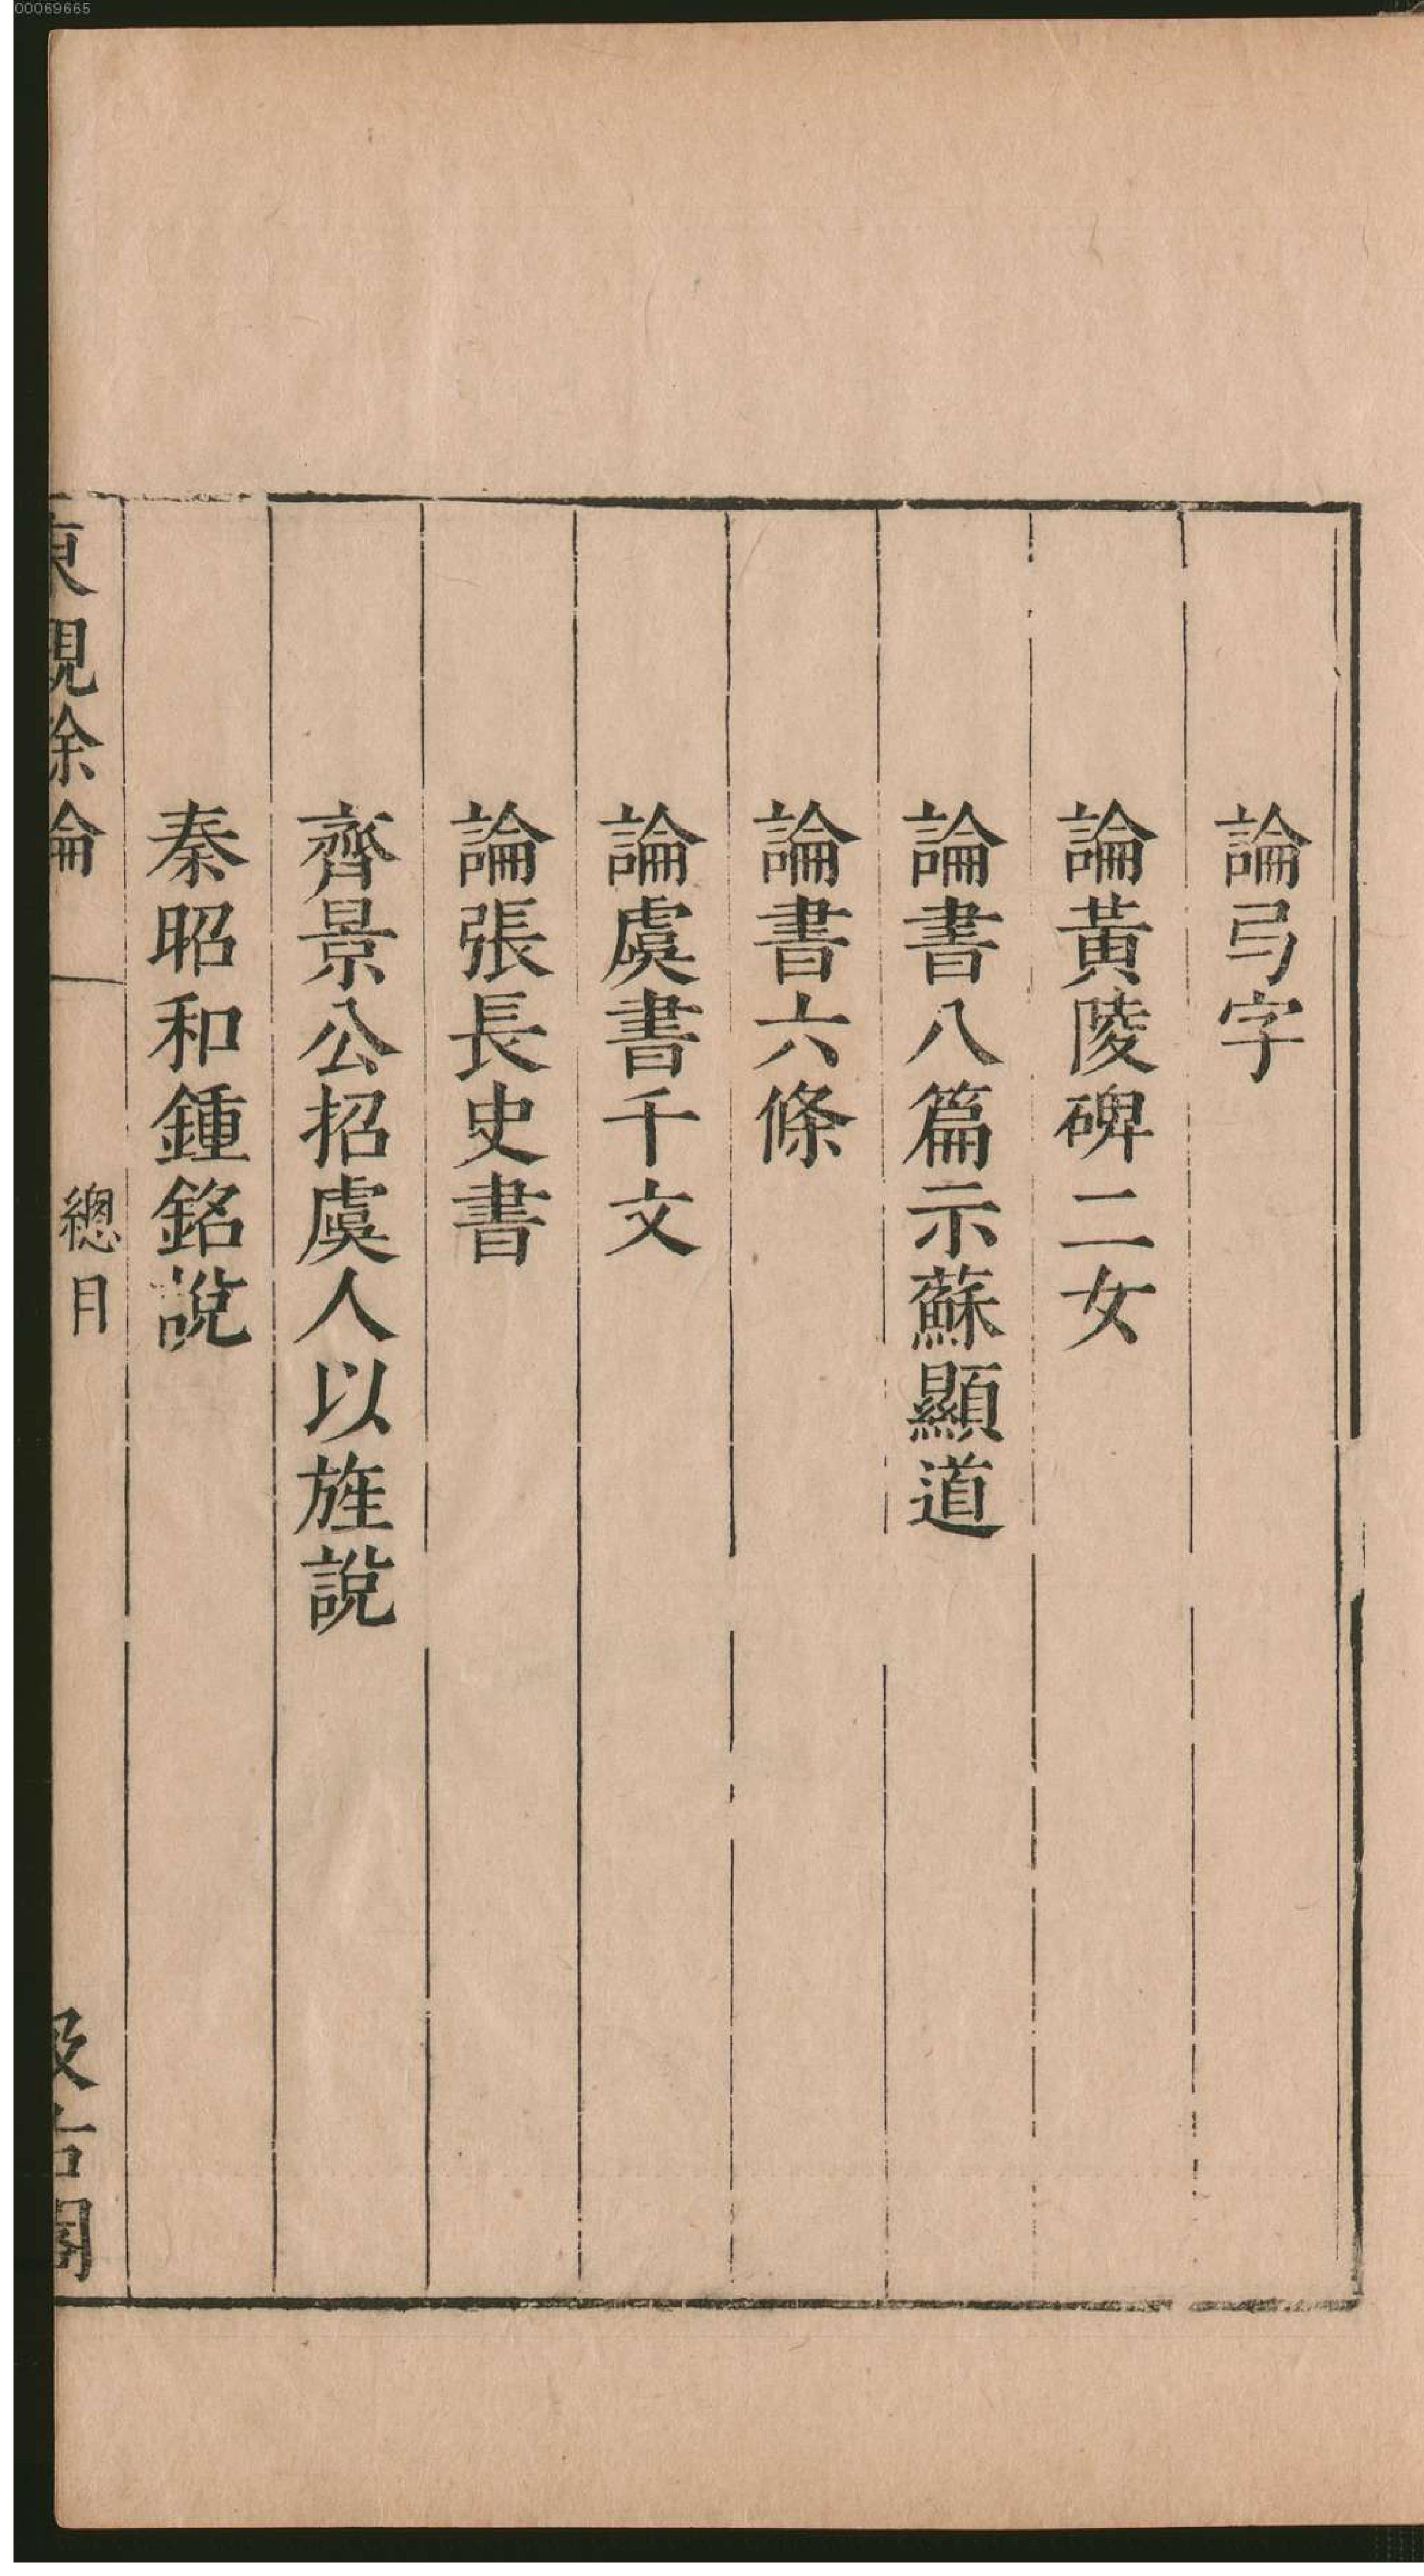 00069665
論弓字
論黃陵碑二女
論書八篇示蘇顯道
論書六條
論虞書千文
論張長史書
齊景公招虞人以旌說
秦昭和鍾銘說
東觀餘論
總目
汲古閣